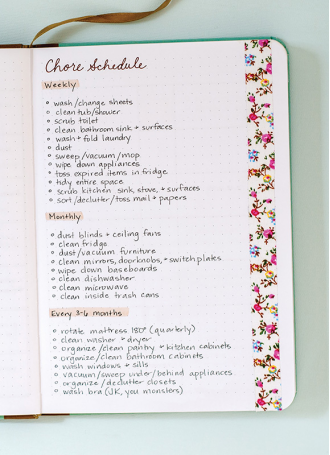 Chore Schedule
Weekly
wash/change sheets
clean tub/shower
scrub toilet
clean bathroom sink + surfaces
wash + fold laundry
dust
sweep/vacuum/mop
wipe down appliances
toss expired items in fridge
tidy entire space
scrub kitchen sink, stove, + surfaces
sort/declutter/toss mail + papers
Monthly
dust blinds + ceiling fans
clean fridge
dust/vacuum furniture
clean mirrors, doorknobs, + switch plates
wipe down baseboards
clean dishwasher
clean microwave
clean inside trash cans
Every 3-6 months
rotate mattress 180° (quarterly)
clean washer + dryer
organize/clean pantry + kitchen cabinets
organize/clean bathroom cabinets
wash windows + sills
vacuum/sweep under/behind appliances
organize/declutter closets
wash bra (JK, you monsters)